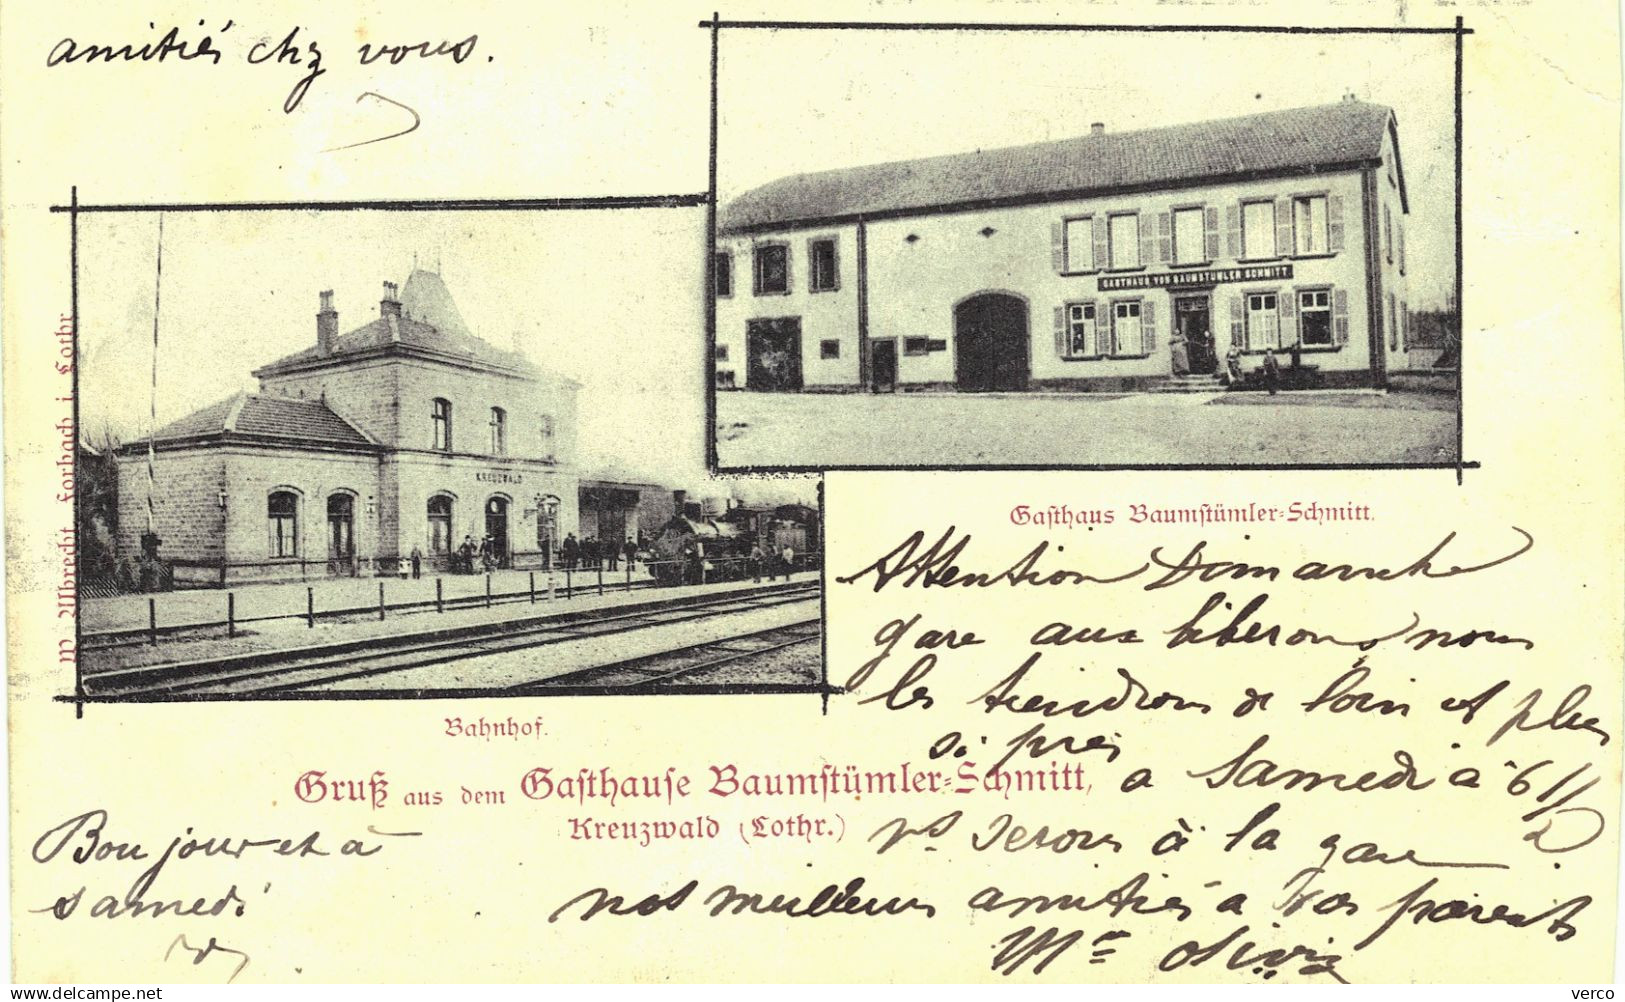 amitiés chz vous.
GASTHAUS VON BAUMSTÜMLER SCHMITT
KREUZWALD
W. Albrecht Forbach i. Lothr
Gasthaus Baumstümler-Schmitt.
Bahnhof.
Gruß aus dem Gasthause Baumstümler-Schmitt,
Kreuzwald (Lothr.)
Attention Dimanche
gare aux biberons nous
les tiendrons de loin et plus
si près
a Samedi à 6 1/2
ns serons à la gare
nos meilleurs amitiés a vos parents
Me
Bonjour et à
samedi
verco